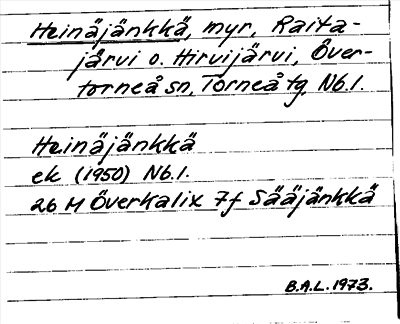 Heinäjänkkä, myr, Raita-
järvi o. Hirvijärvi, Över-
torneå sn, Torneå tg, Nb.l.
Heinäjänkkä
ek (1950) Nb.l.
26 M Överkalix 7f Sääjänkkä
B.A.L. 1973.